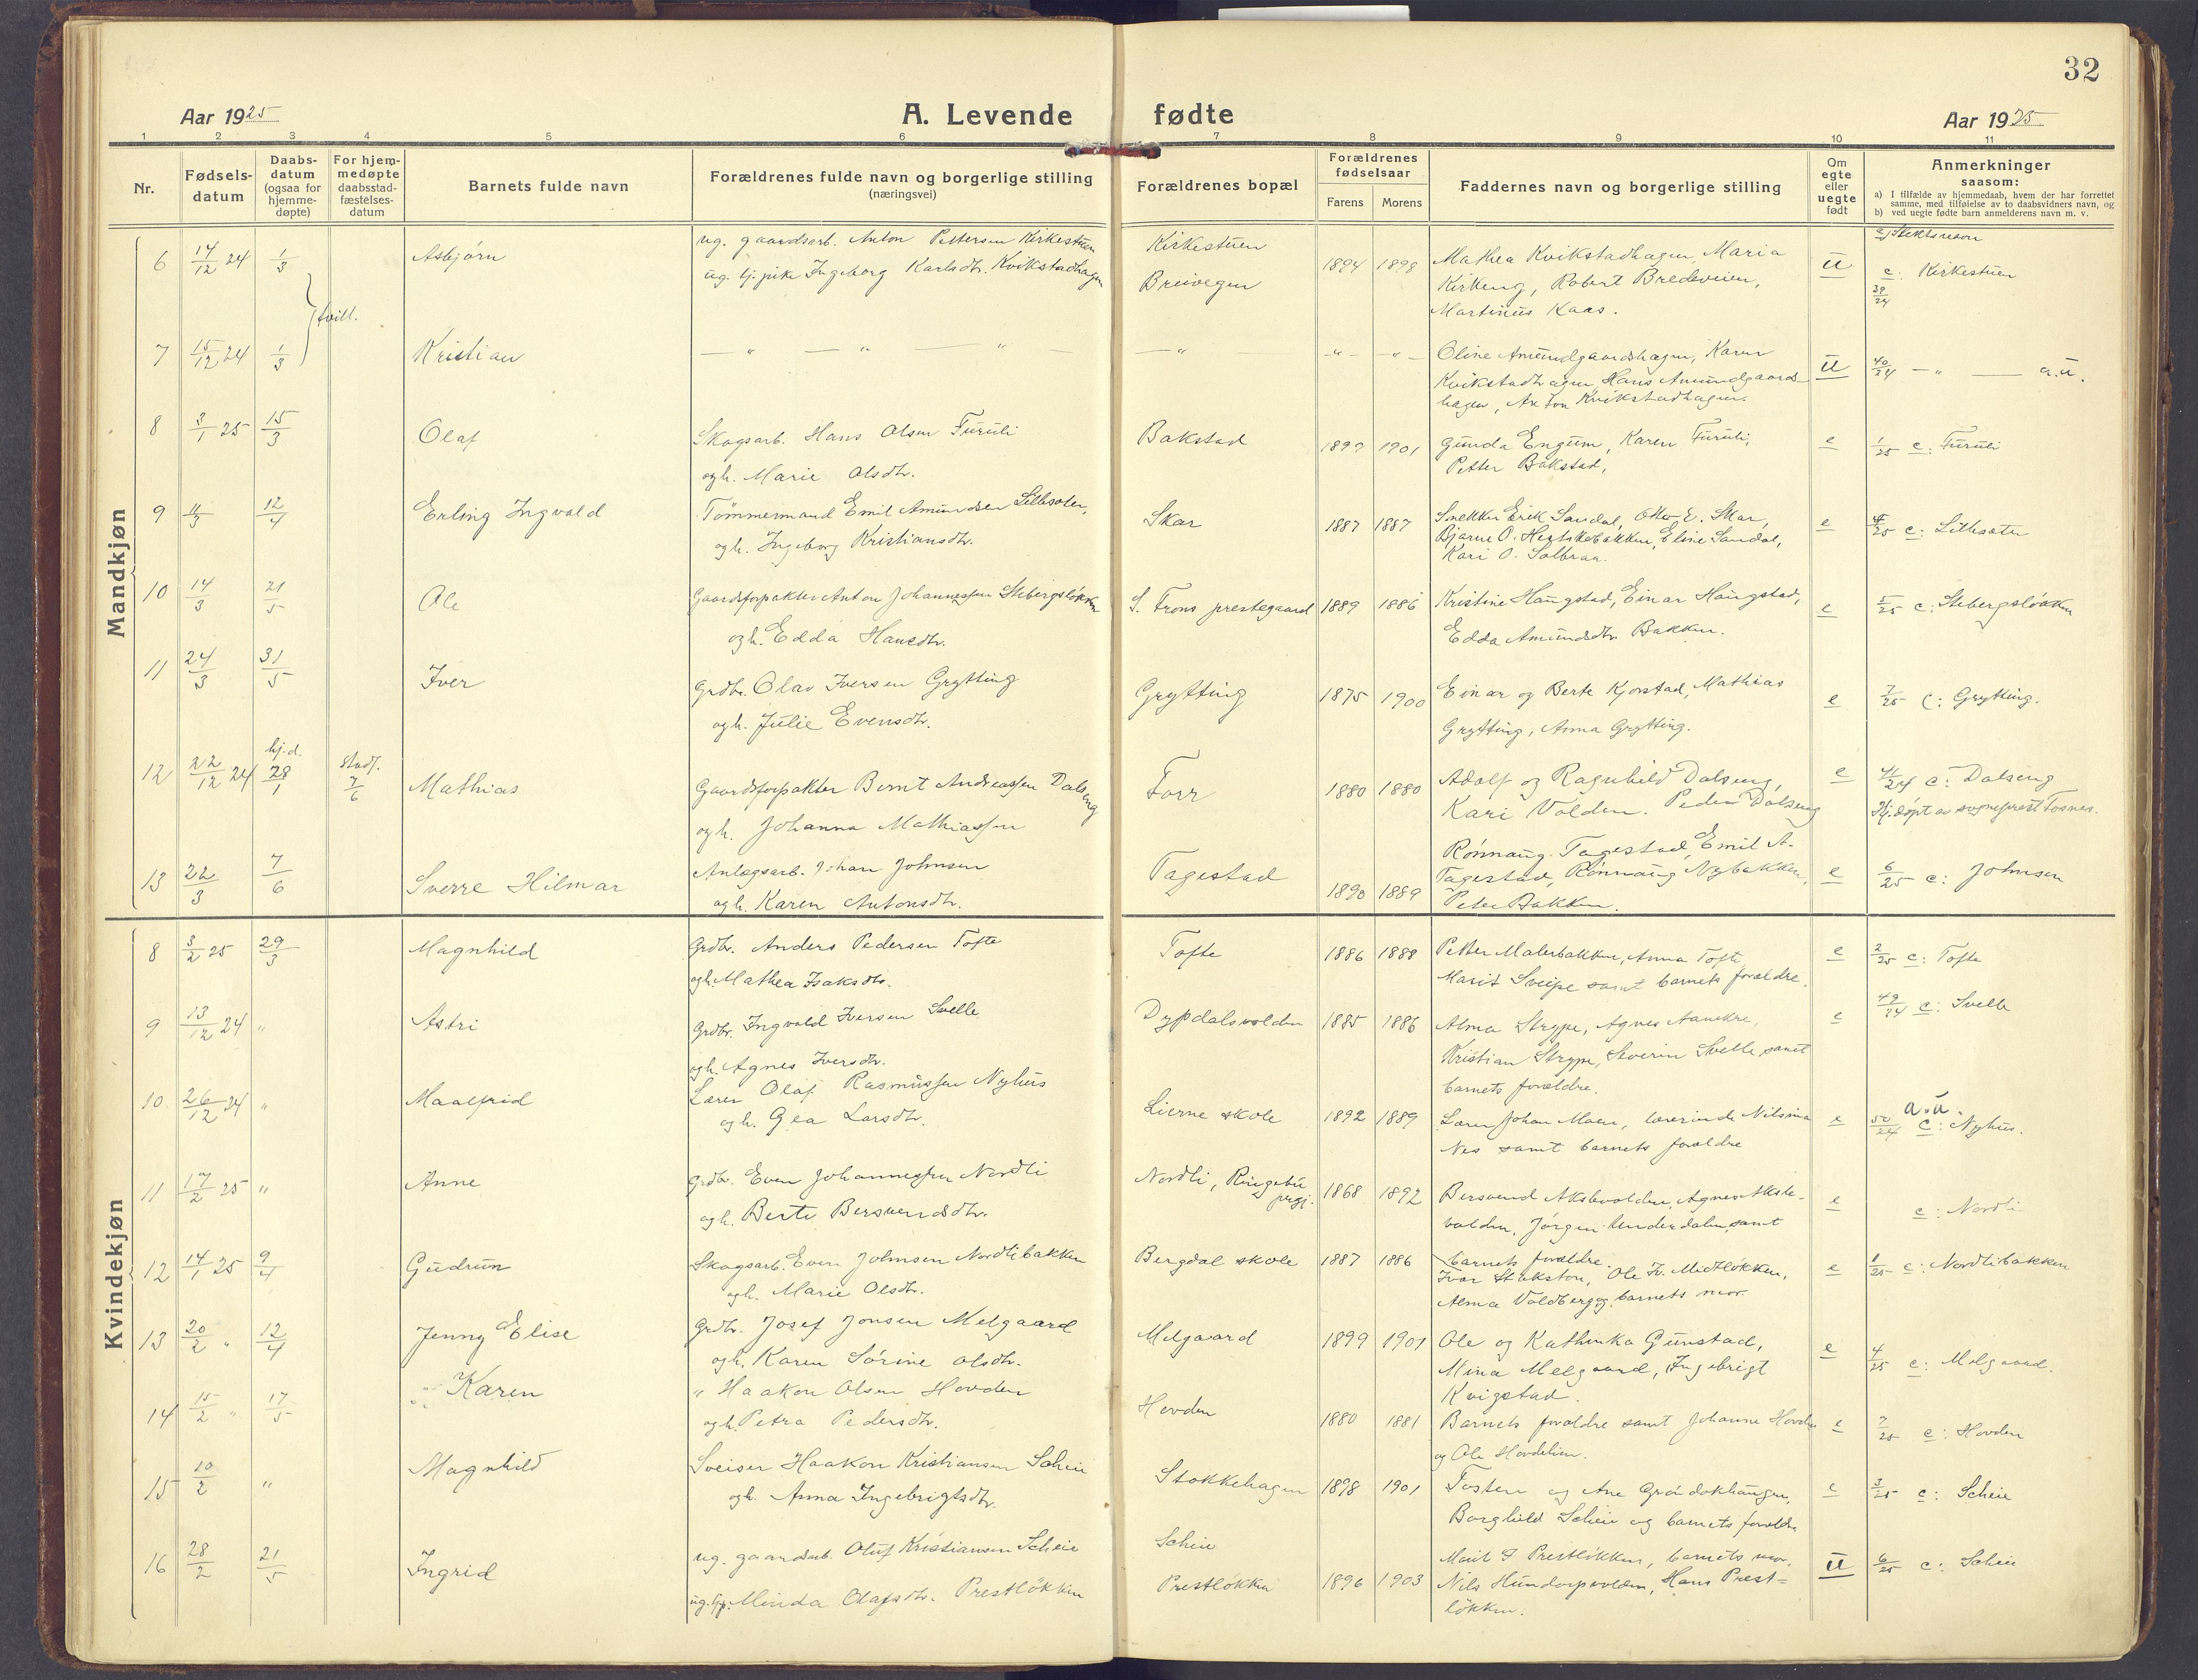 32
Aar 1925
A. Levende fødte
Aar 1925
1 2 3 4 5 6 7 8 9 10 11
Nr.
Fødsels-
datum
Daabs-
datum
(ogsaa for
hjemme-
døpte)
For hjem-
medøpte
daabsstad-
fæstelses-
datum
Barnets fulde navn
Forældrenes fulde navn og borgerlige stilling
(næringsvei)
Forældrenes bopæl
Forældrenes
fødselsaar
Farens Morens
Faddernes navn og borgerlige stilling
Om
egte
eller
uegte
født
Anmerkninger
saasom:
a) I tilfælde av hjemmedaab, hvem der har forrettet
samme, med tilføielse av to daabsvidners navn, og
b) ved uegte fødte barn anmelderens navn m. v.
Mandkjøn
6 14/12 24 1/3 Asbjørn
ug. gaardsarb. Anton Pettersen Kirkestuen
ug. tj.pike Ingeborg Karlsdtr. Kvikstadhagen
Kirkestuen
Breivegen
1894 1898
Mathea Kvikstadhagen, Maria
Kirkeng, Robert Bredeveien,
Martinus Kaas.
U
c: Kirkestuen
39/24
tvill.
7 15/12 24 1/3 Kristian
— " — " — " —
— " —
-"- -"-
Oline Amundgaardshagen, Karen
Kvikstadhagen, Hans Amundgaards-
hagen, Anton Kvikstadhagen.
U
40/24 — " — a.u.
8 3/1 25 15/3 Olaf
Skogsarb. Hans Olsen Furuli
ogh. Marie Olsdtr.
Bakstad
1899 1901
Gunda Engum, Karen Furuli,
Petter Bakstad,
e
1/25 c: Furuli
9 11/3 12/4 Erling Ingvald
Tømmermand Emil Amundsen Litlesæter,
ogh. Ingeborg Kristiansdtr.
Skar
1887 1887
Snekker Erik Sandal, Otto E. Skar,
Bjarne O. Hestskobakken, Eline Sandal,
Kari O. Solbraa.
e
4/25 c: Litlesæter
10 14/3 21/5 Ole
Gaardsforpakter Anton Johannessen Stebergsløkken
ogh. Edda Hansdtr.
S. Frons prestegaard
1889 1886
Kristine Haugstad, Einar Haugstad,
Edda Amundsdtr. Bakken.
e
5/25 c: Stebergsløkken
11 24/3 31/5 Iver
Grdbr. Olav Iversen Grytting
ogh. Julie Evensdtr.
Grytting
1875 1900
Einar og Berte Kjorstad, Mathias
Grytting, Anna Grytting.
e
7/25 c: Grytting.
12 22/12 24 hj.d. 28/1 stadf. 7/6 Mathias
Gaardsforpakter Bernt Andreassen Dalseng
ogh. Johanna Mathiassen
Forr
1880 1880
Adolf og Ragnhild Dalseng,
Kari Volden. Peder Dalseng
e
41/24 c: Dalseng
Hj. døpt av sogneprest Fosnes.
13 22/3 7/6 Sverre Hilmar
Anlægsarb. Johan Johnsen
ogh. Karen Antonsdtr.
Tagestad
1890 1889
Rønnaug Tagestad, Emil A-
Tagestad, Rønnaug Nybakken,
Peter Bakken.
e
6/25 c: Johnsen
Kvindekjøn
8 3/2 25 29/3 Magnhild
Grdbr. Anders Pedersen Tofte
ogh. Mathea Isaksdtr.
Tofte
1886 1888
Petter Malerbakken, Anna Tofte,
Marit Sveipe samt barnets forældre.
e
2/25 c: Tofte
9 13/12 24 " Astri
Grdbr. Ingvald Iversen Svelle
ogh. Agnes Iversdtr.
Dypdalsvolden
1885 1886
Alma Strype, Agnes Aanekre,
Kristian Strype, Severin Svelle samt
barnets forældre.
e
49/24 c: Svelle
10 26/12 24 " Maalfrid
Lærer Olaf Rasmussen Nyhus
ogh. Gea Larsdtr.
Lierne skole
1892 1889
Lærer Johan Moen, lærerinde Nilsina
Nes samt barnets forældre
e
a.u.
50/24 c: Nyhus.
11 17/2 25 " Anne
Grdbr. Even Johannessen Nordli
ogh. Berte Bersvendsdtr.
Nordli, Ringebu
prgj.
1868 1892
Bersvend Akslevolden, Agnes Aksle-
volden, Jørgen Underdalen, samt
barnets forældre.
e
c: Nordli
12 14/1 25 9/4 Gudrun
Skogsarb. Even Johnsen Nordlibakken
ogh. Marie Olsdtr.
Bergdal skole
1887 1886
Ivar Stokston, Ole Iv. Midtløkken,
Alma Voldberg og barnets mor.
e
1/25 c: Nordlibakken
13 20/2 " 12/4 Jenny Elise
Grdbr. Josef Jonsen Melgaard
ogh. Karen Sørine Olsdtr.
Melgaard
1899 1901
Ole og Kathinka Gunstad,
Mina Melgaard, Ingebrigt
Kvigstad.
e
4/25 c: Melgaard.
14 15/2 " 17/5 Karen
" Haakon Olsen Hovden
ogh. Petra Pedersdtr.
Hovden
1880 1881
Barnets forældre samt Johanne Hovden
og Ole Hovdelien.
e
7/25 c: Hovden
15 10/2 " Magnhild
Sveiser Haakon Kristiansen Scheie
ogh. Anna Ingebrigtsdtr.
Stokkehagen
1898 1901
Tosten og Ane Grøndokhaugen,
Borghild Scheie og barnets forældre
e
3/25 c: Scheie
16 28/2 21/5 Ingrid
ug. gaardsarb. Oluf Kristiansen Scheie
ug. tjp. Minda Olafsdtr. Prestløkken
Scheie
Prestløkken
1896 1903
Marit G Prestløkken, barnets mor.
Nils Hundorpvolden, Hans Prest-
løkken.
U
6/25 c: Scheie